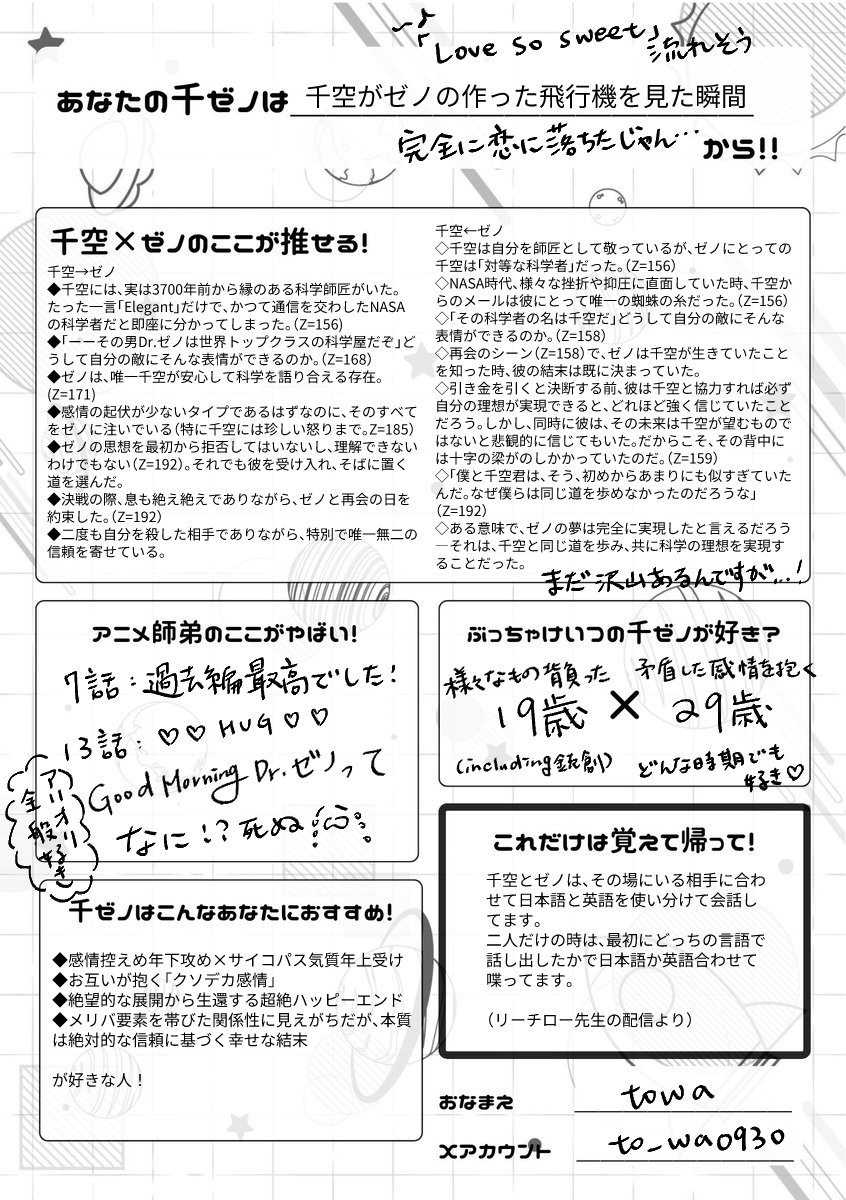 〜♪
「Love so sweet」流れそう
あなたの千ゼノは 千空がゼノの作った飛行機を見た瞬間
完全に恋に落ちたじゃん… から!!
千空×ゼノのここが推せる!
千空→ゼノ
◆千空には、実は3700年前から縁のある科学師匠がいた。
たった一言「Elegant」だけで、かつて通信を交わしたNASA
の科学者だと即座に分かってしまった。(Z=156)
◆「ーーその男Dr.ゼノは世界トップクラスの科学屋だぞ」ど
うして自分の敵にそんな表情ができるのか。(Z=168)
◆ゼノは、唯一千空が安心して科学を語り合える存在。
(Z=171)
◆感情の起伏が少ないタイプであるはずなのに、そのすべて
をゼノに注いでいる(特に千空には珍しい怒りまで。Z=185)
◆ゼノの思想を最初から拒否してはいないし、理解できない
わけでもない(Z=192)。それでも彼を受け入れ、そばに置く
道を選んだ。
◆決戦の際、息も絶え絶えでありながら、ゼノと再会の日を
約束した。(Z=192)
◆二度も自分を殺した相手でありながら、特別で唯一無二の
信頼を寄せている。
千空←ゼノ
◇千空は自分を師匠として敬っているが、ゼノにとっての
千空は「対等な科学者」だった。(Z=156)
◇NASA時代、様々な挫折や抑圧に直面していた時、千空か
らのメールは彼にとって唯一の蜘蛛の糸だった。(Z=156)
◇「その科学者の名は千空だ」どうして自分の敵にそんな
表情ができるのか。(Z=158)
◇再会のシーン(Z=158)で、ゼノは千空が生きていたこと
を知った時、彼の結末は既に決まっていた。
◇引き金を引くと決断する前、彼は千空と協力すれば必ず
自分の理想が実現できると、どれほど強く信じていたこと
だろう。しかし、同時に彼は、その未来は千空が望むもので
はないと悲観的に信じてもいた。だからこそ、その背中に
は十字の梁がのしかかっていたのだ。(Z=159)
◇「僕と千空君は、そう、初めからあまりにも似すぎていた
んだ。なぜ僕らは同じ道を歩めなかったのだろうな」
(Z=192)
◇ある意味で、ゼノの夢は完全に実現したと言えるだろう
―それは、千空と同じ道を歩み、共に科学の理想を実現す
ることだった。
まだ沢山あるんですが…!
アニメ師弟のここがやばい!
7話：過去編最高でした!
13話：♡♡ HUG ♡♡
Good Morning Dr.ゼノって
なに!? 死ぬ
アリオリ
全般好き
ぶっちゃけいつの千ゼノが好き?
様々なもの背負った 矛盾した感情を抱く
19歳 × 29歳
(including銃創) どんな時期でも
好き♡
これだけは覚えて帰って!
千空とゼノは、その場にいる相手に合わ
せて日本語と英語を使い分けて会話し
てます。
二人だけの時は、最初にどっちの言語で
話し出したかで日本語か英語合わせて
喋ってます。
(リーチロー先生の配信より)
千ゼノはこんなあなたにおすすめ!
◆感情控えめ年下攻め×サイコパス気質年上受け
◆お互いが抱く「クソデカ感情」
◆絶望的な展開から生還する超絶ハッピーエンド
◆メリバ要素を帯びた関係性に見えがちだが、本質
は絶対的な信頼に基づく幸せな結末
が好きな人！
おなまえ towa
Xアカウント to_wa0930